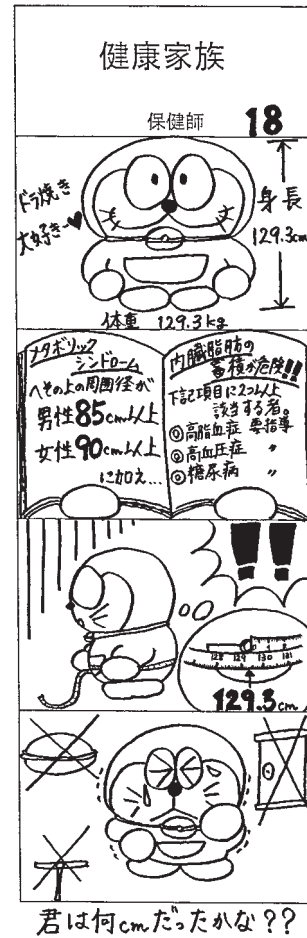 健康家族
保健師 18
ドラ焼き
大好きー♥
身長
129.3cm
体重 129.3kg
メタボリック
シンドローム
へその上の周囲径が
男性85cm以上
女性90cm以上
に加え…
内臓脂肪の
蓄積が危険!!
下記項目に2つ以上
該当する者。
◎高脂血症 要指導
◎高血圧症 〃
◎糖尿病 〃
!!
128 129 130 131
129.3cm
君は何cmだったかな??